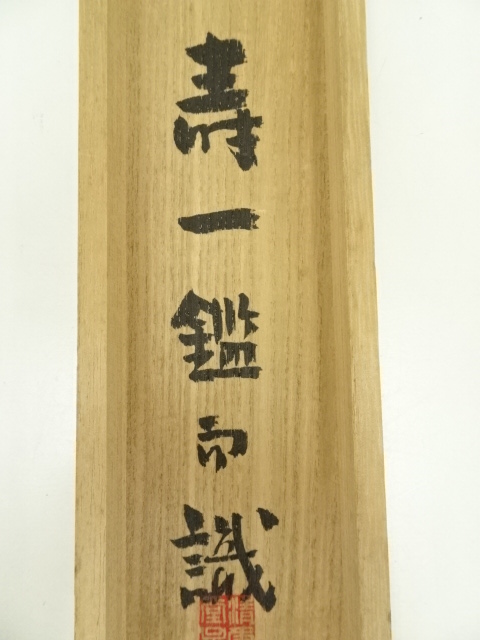 寿一鑑而識